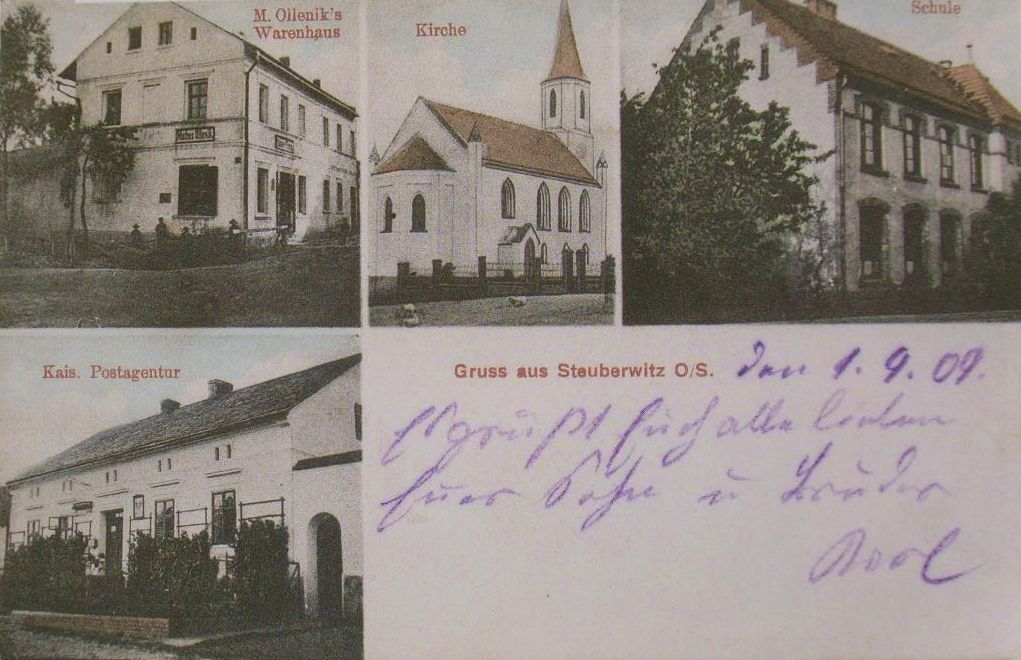 M. Ollenik's
Warenhaus
Kirche
Schule
Kais. Postagentur
Gruss aus Steuberwitz O/S.
den 1. 9. 09.
Es grüßt Euch alle
Euer Sohn u Bruder
Karl